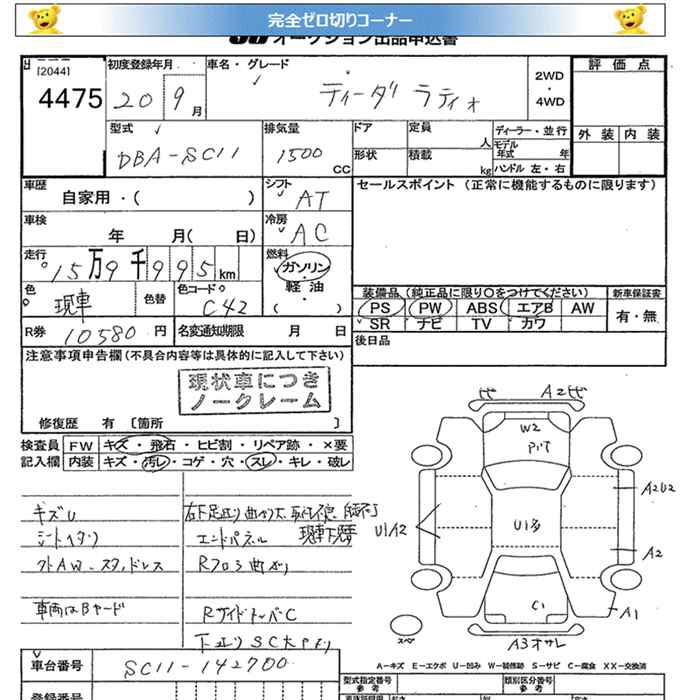 完全ゼロ切りコーナー
オークション出品申込書
[2044]
4475
初度登録年月
20 9月
車名・グレード
ティーダ ラティオ
2WD
・
4WD
評価点
外装 内装
型式
DBA-SC11
排気量
1500 CC
ドア
形状
定員
人
積載
kg
ディーラー・並行
モデル年式 年
ハンドル 左・右
車歴
自家用・( )
シフト
AT
セールスポイント (正常に機能するものに限ります)
車検
年 月( 日)
冷房
AC
走行
15万9千995km
燃料
ガソリン
・
軽油
( )
色
現車
色替
色コード
C42
装備品 (純正品に限り〇をつけてください)
新車保証書
PS PW ABS エアB AW
SR ナビ TV カワ
有・無
R券
10580円
名変通知期限 月 日
後日品
注意事項申告欄(不具合内容等は具体的に記入して下さい)
現状車につき
ノークレーム
修復歴 有 [箇所 ]
検査員 FW キズ・飛石・ヒビ割・リペア跡・×要
記入欄 内装 キズ・汚レ・コゲ・穴・スレ・キレ・破レ
キズU
シートヘタリ
外AW-スタッドレス
車両はBヤード
エンドパネル
Rフロア曲がり
RサイドメンバーC
W2
U1A2
A2U2
A2
A1
C1
A3オサレ
スペ
A-キズ E-エクボ U-凹み W-補修跡 S-サビ C-腐食 XX-交換済
車台番号
SC11-142700
登録番号
型式指定番号
参考
類別区分番号
参考